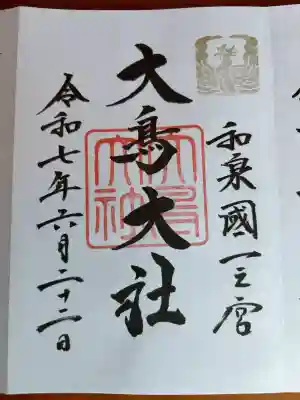 和泉國一之宮
大鳥大社
大鳥大社
令和七年六月二十二日